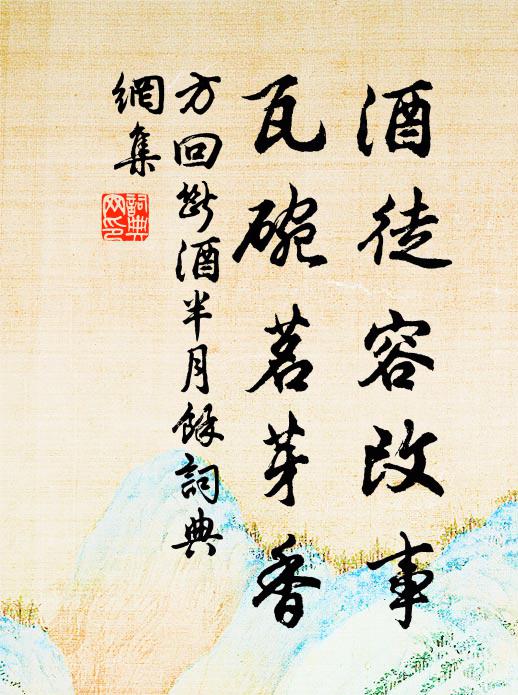 酒徒容改事
瓦碗茗芽香
方回断酒半月馀词典
網集
詞典
网印